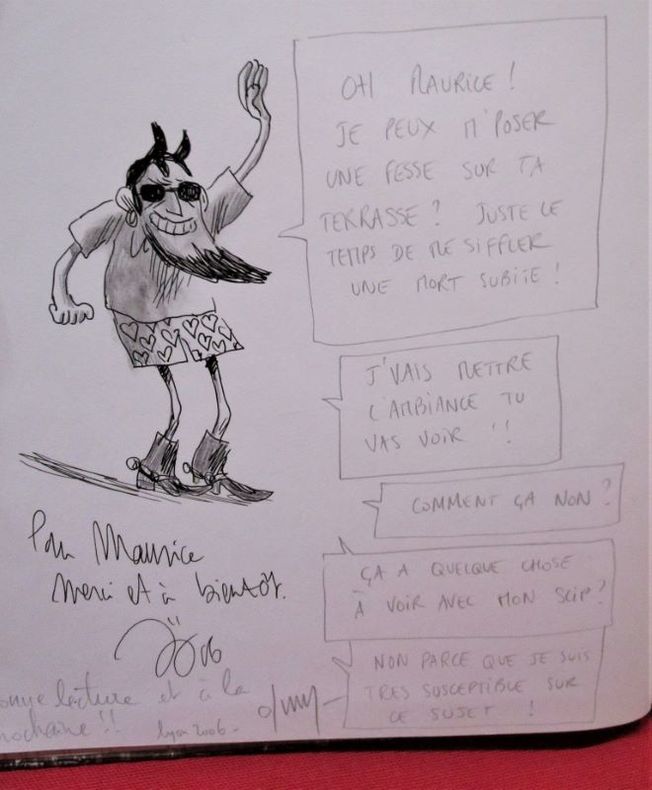 OH MAURICE !
JE PEUX M'POSER
UNE FESSE SUR TA
TERRASSE ? JUSTE LE
TEMPS DE ME SIFFLER
UNE MORT SUBITE !
J'VAIS METTRE
L'AMBIANCE TU
VAS VOIR !!
COMMENT ÇA NON ?
ÇA A QUELQUE CHOSE
À VOIR AVEC MON SLIP ?
NON PARCE QUE JE SUIS
TRES SUSCEPTIBLE SUR
CE SUJET !
Pour Maurice
Merci et à bientôt.
onne lecture et à la
rochaine !! Lyon 2006 -